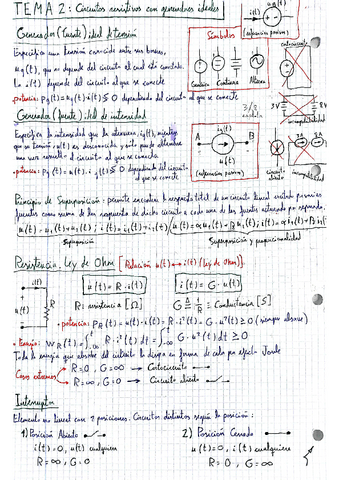 TEMA 2: Circuitos resistivos con generadores ideales
Generador (fuente) ideal de tensión
Especifica una tensión conocida entre sus bornes,
u_g(t), que no depende del circuito al cual esté conectado.
La i(t) depende del circuito al que se conecte
· potencia: p_g(t) = u_g(t) i(t) ≶ 0 dependiendo del circuito al que se conecte
Símbolos
Genérico Continua Alterna
i(t) u_g(t)
(referencia pasiva)
cortocircuito
3V 8V
incompatibilidad
Generador (fuente) ideal de intensidad
Especifica la intensidad que la atraviesa, i_g(t), mientras
que su tensión u(t) es desconocida, y sólo puede obtenerse
una vez conocido el circuito al que se conecta.
· potencia: p_g(t) = u(t) · i_g(t) ≶ 0 dependiendo del circuito
al que se conecte
A i_g(t) B
u(t)
(referencia pasiva)
circuito
abierto
incompatibilidad
Principio de Superposición: permite encontrar la respuesta total de un circuito lineal excitado por varias
fuentes como suma de las respuestas de dicho circuito a cada una de las fuentes actuando por separado.
u(t) = u₁(t) + u₂(t) ; i(t) = i₁(t) + i₂(t)
u(t) = α u₁(t) + β u₂(t) ; i(t) = α i₁(t) + β i₂(t)
Superposición
Superposición y proporcionalidad
Resistencia. Ley de Ohm [Relación u(t) ↔ i(t) (ley de Ohm)]
i(t)
u(t) R
u(t) = R · i(t)
i(t) = G · u(t)
R ≡ resistencia [Ω]
G ≜ 1/R ≡ Conductancia [S]
· potencia: p_R(t) = u(t) · i(t) = R · i²(t) = G · u²(t) ≥ 0 (siempre absorbe)
· Energía: W_R(t) = ∫ R · i²(t) dt = ∫ G · u²(t) dt ≥ 0
Toda la energía que absorbe del circuito la disipa en forma de calor por efecto Joule
Casos extremos
R = 0, G = ∞ → Cortocircuito
R = ∞, G = 0 → Circuito abierto
Interruptor
Elemento no lineal con 2 posiciones. Circuitos distintos según la posición:
1) Posición Abierto
i(t) = 0, u(t) cualquiera
R = ∞, G = 0
2) Posición Cerrado
u(t) = 0, i(t) cualquiera
R = 0, G = ∞